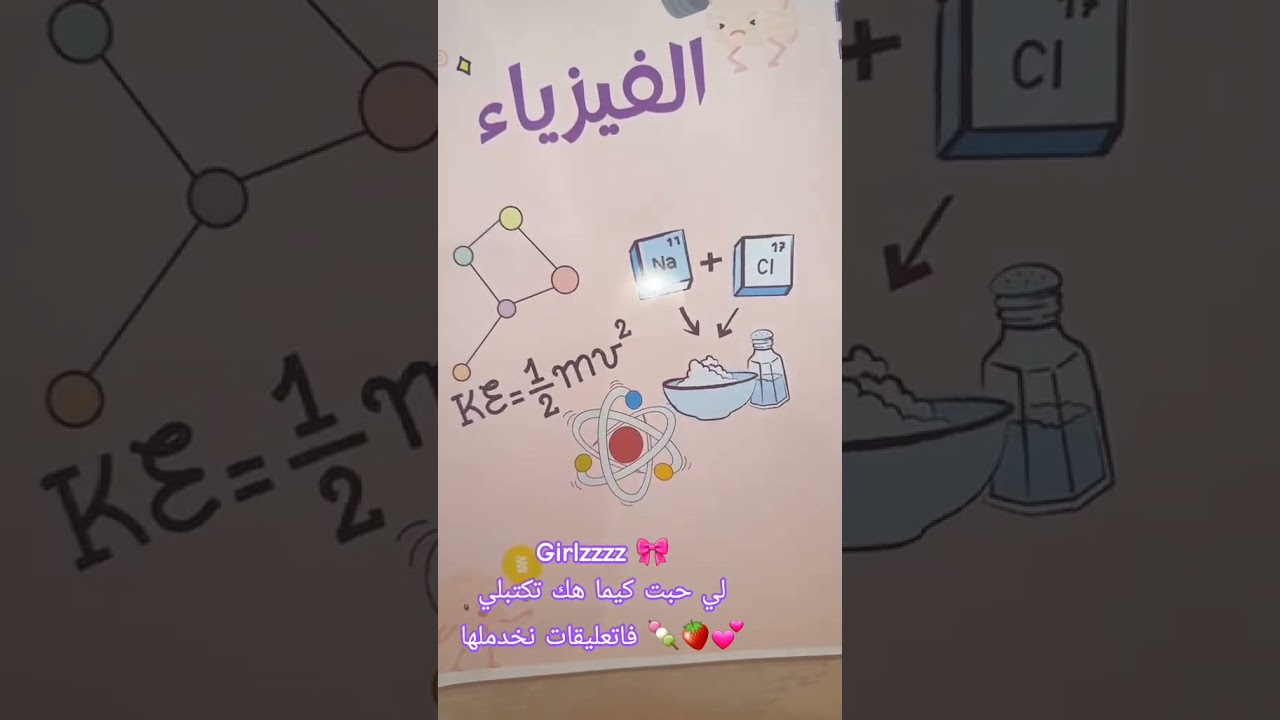 الفيزياء
11
Na
+
17
Cl
KE = 1/2 mv²
Girlzzzz 🎀
لي حبت كيما هك تكتبلي
فاتعليقات نخدملها 🍡🍓💕
17
+ Cl
KE = 1/2 m